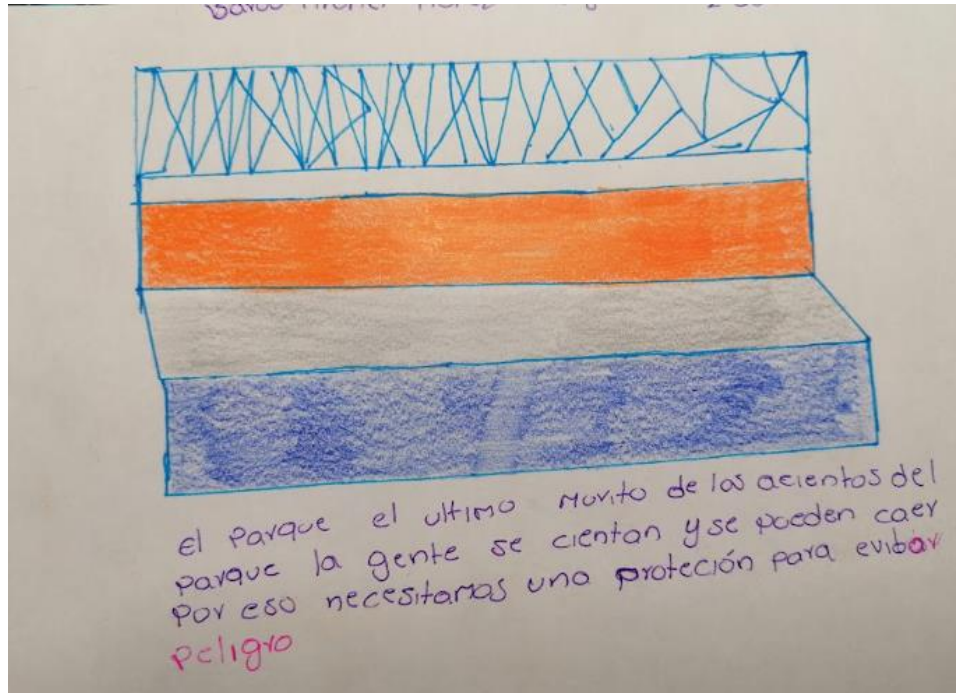 el Parque el ultimo Murito de los acientos del
parque la gente se cientan y se pueden caer
Por eso necesitamos una proteción para evibar
peligro